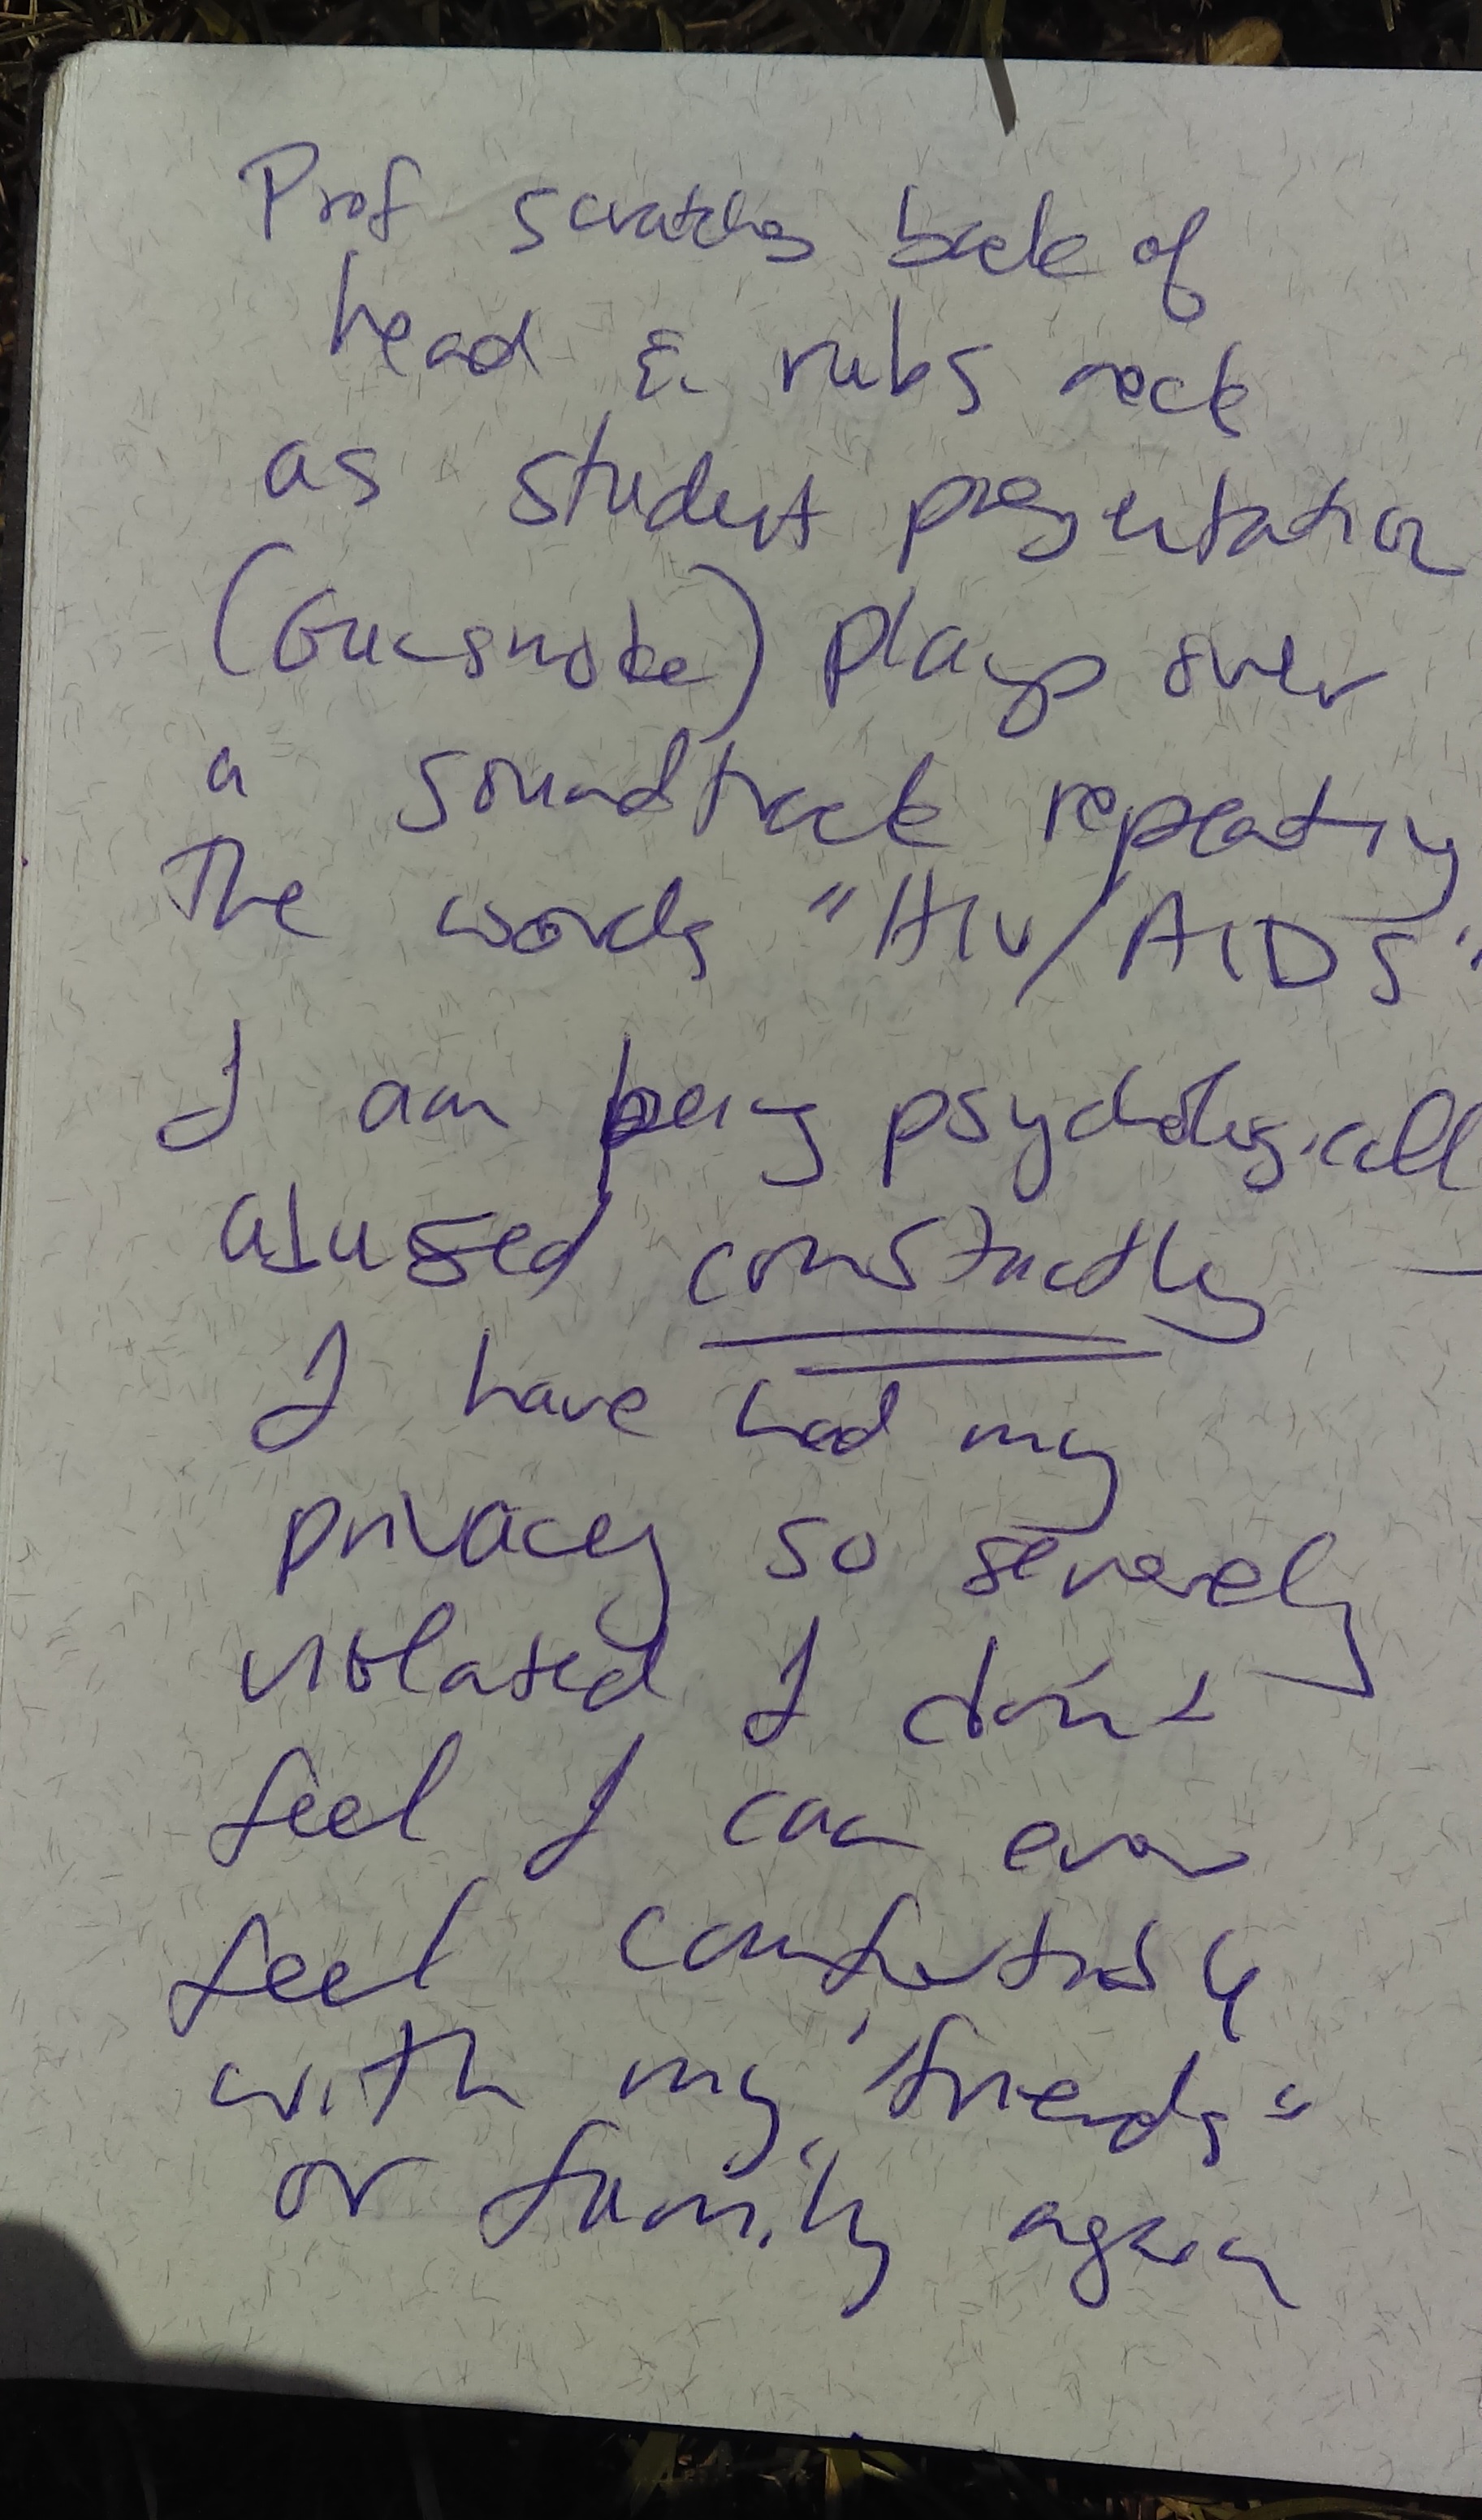 Prof scratches back of
head & rubs neck
as student presentation
(Gunsmoke) plays over
a soundtrack repeating
the words "HIV/AIDS"
I am being psychologicall
abused constantly
I have had my
privacy so severely
violated I don't
feel I can ever
feel comfortably
with my "friends"
or family again